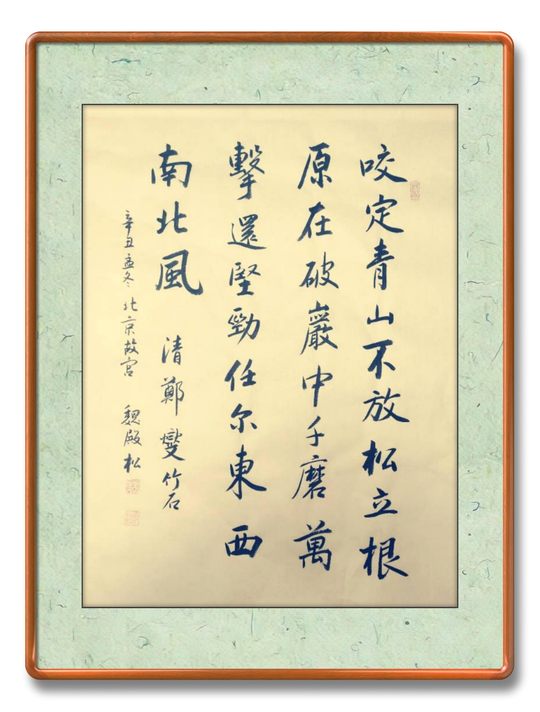 咬定青山不放松立根
原在破巖中千磨萬
擊還堅勁任尔東西
南北風
清鄭燮竹石
辛丑孟冬北京故宮魏殿松